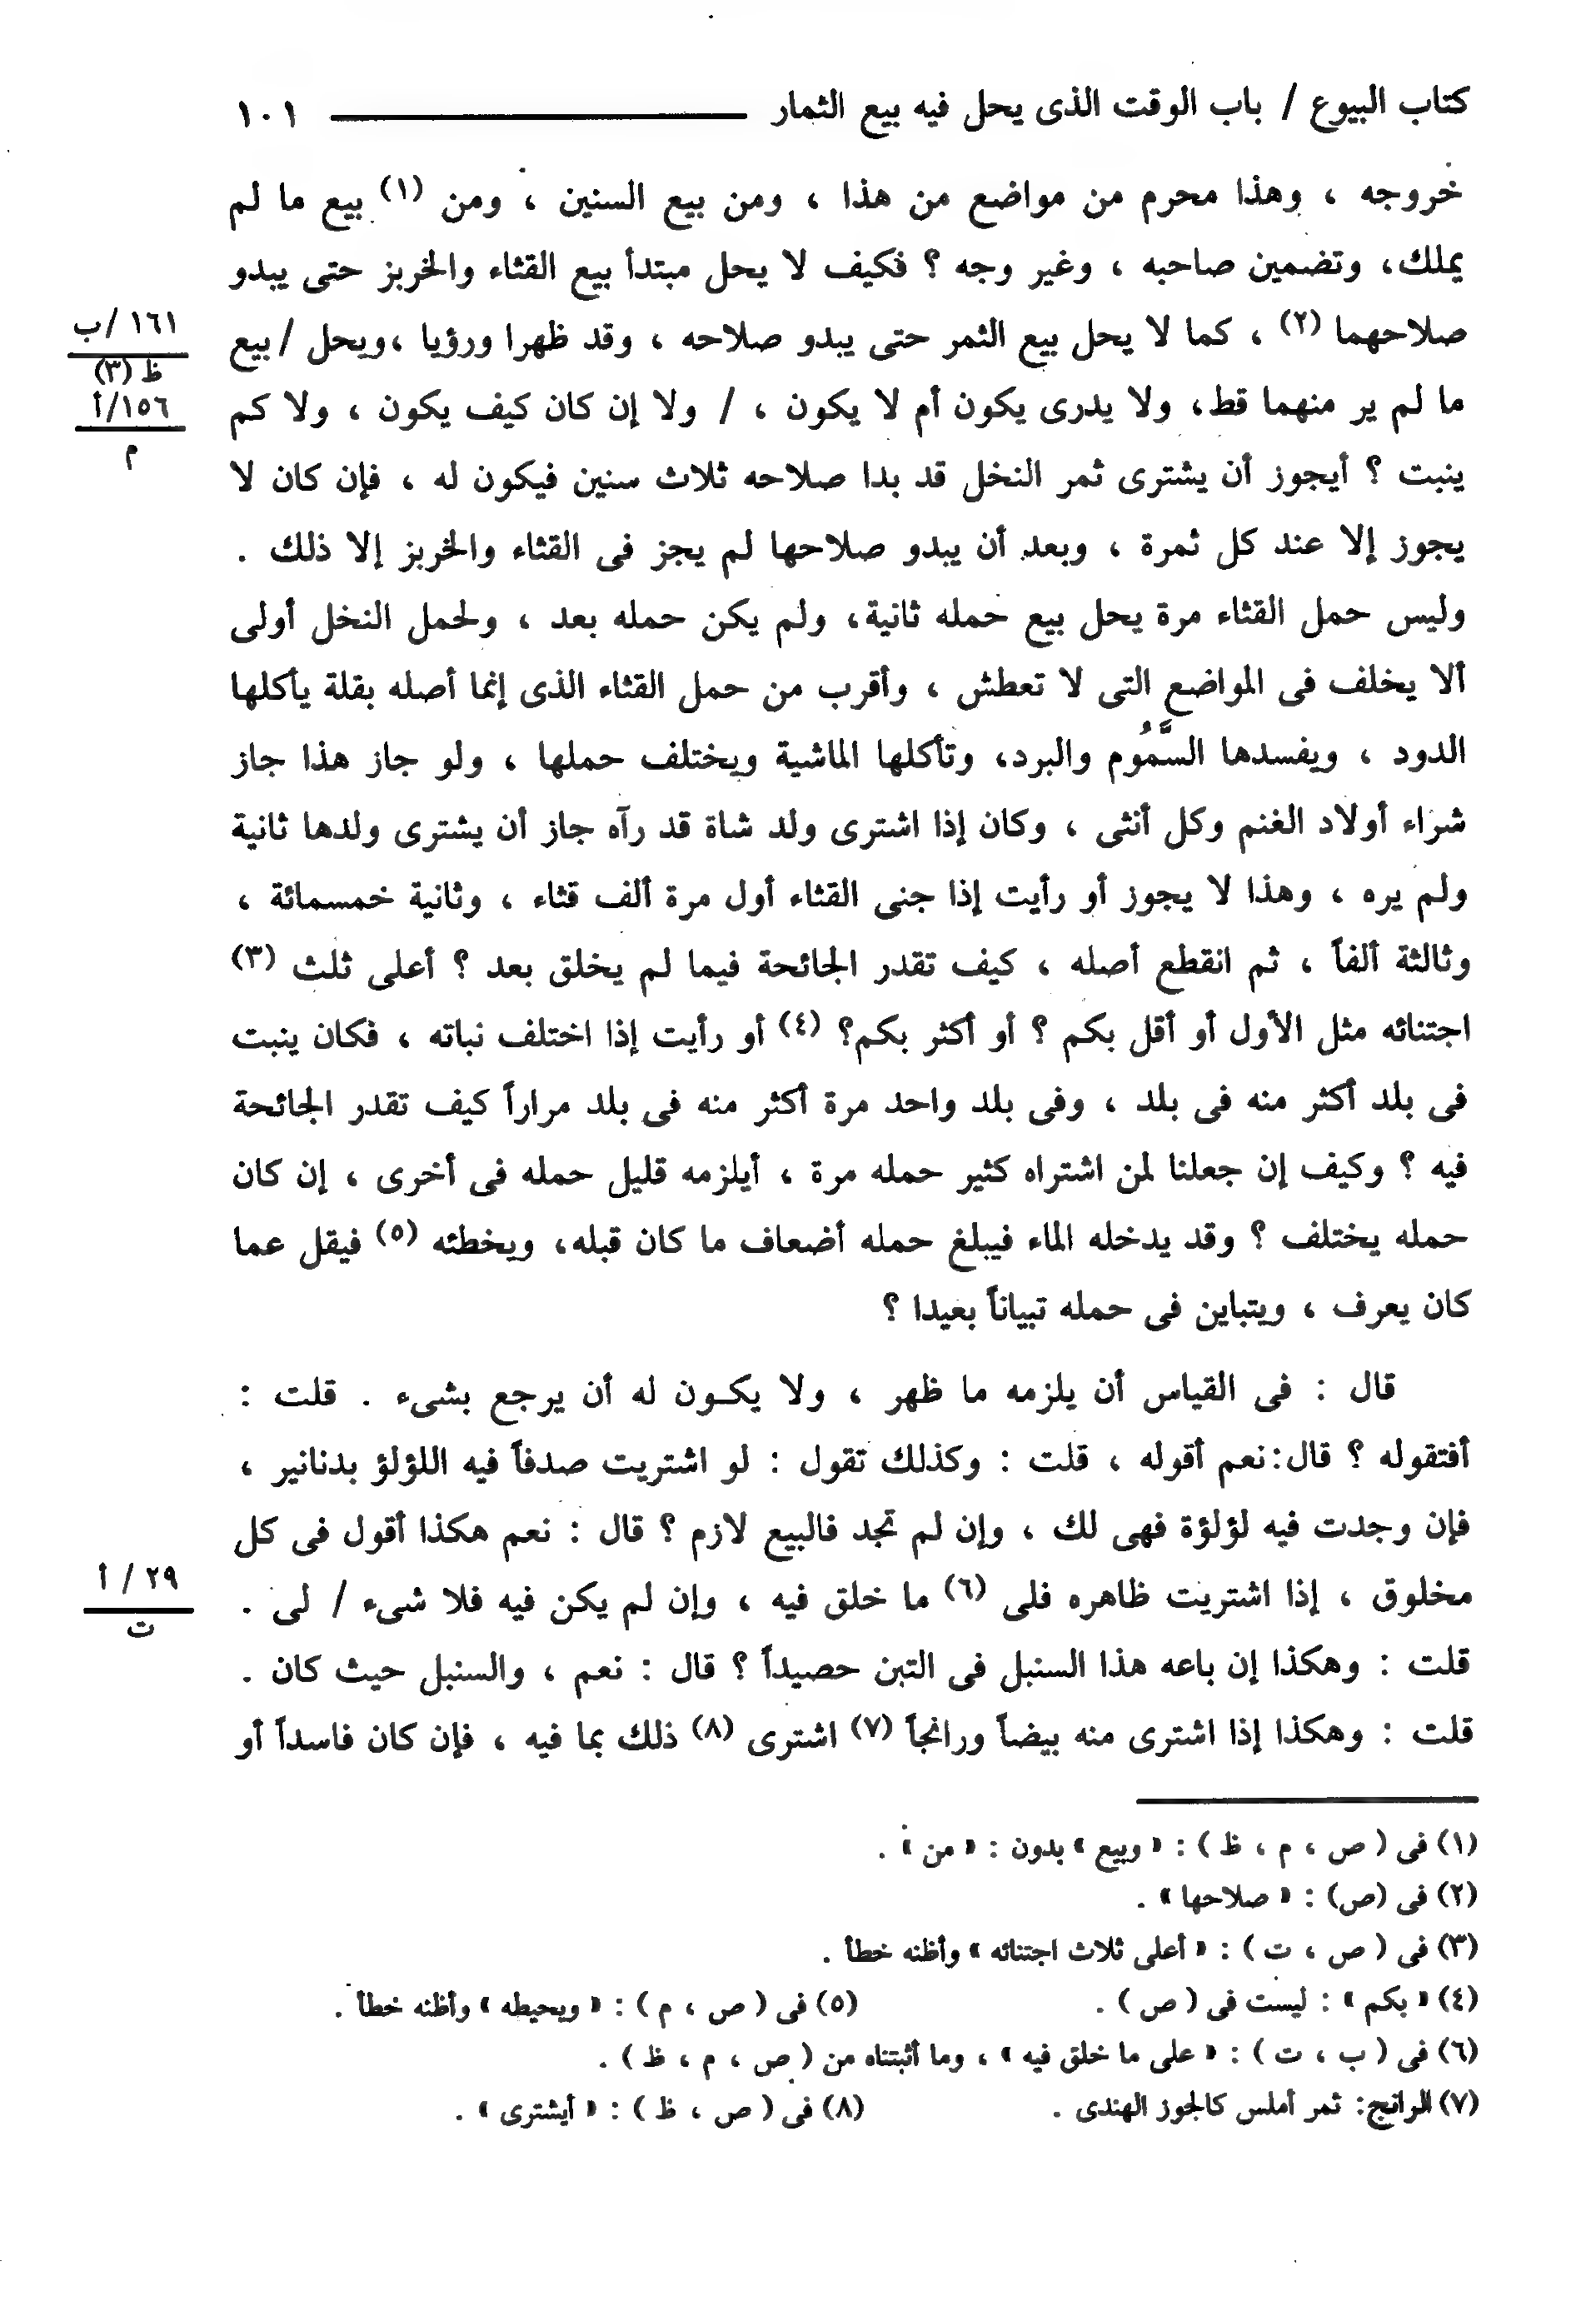 كتاب البيوع / باب الوقت الذى يحل فيه بيع الثمار ــــــــــ ١٠١
خروجه ، وهذا محرم من مواضع من هذا ، ومن بيع السنين ، ومن (١) بيع ما لم
يملك، وتضمين صاحبه ، وغير وجه ؟ فكيف لا يحل مبتدأ بيع القثاء والخربز حتى يبدو
صلاحهما (٢) ، كما لا يحل بيع الثمر حتى يبدو صلاحه ، وقد ظهرا ورؤيا ،ويحل /بيع
١٦١ /ب
ظ (٣)
ما لم ير منهما قط، ولا يدرى يكون أم لا يكون ، / ولا إن كان كيف يكون ، ولا كم
١٥٦/أ
م
ينبت ؟ أيجوز أن يشترى ثمر النخل قد بدا صلاحه ثلاث سنين فيكون له ، فإن كان لا
يجوز إلا عند كل ثمرة ، وبعد أن يبدو صلاحها لم يجز فى القثاء والخربز إلا ذلك .
وليس حمل القثاء مرة يحل بيع حمله ثانية، ولم يكن حمله بعد ، ولحمل النخل أولى
ألا يخلف فى المواضع التى لا تعطش ، وأقرب من حمل القثاء الذى إنما أصله بقلة يأكلها
الدود ، ويفسدها السَّمُوم والبرد، وتأكلها الماشية ويختلف حملها ، ولو جاز هذا جاز
شراء أولاد الغنم وكل أنثى ، وكان إذا اشترى ولد شاة قد رآه جاز أن يشترى ولدها ثانية
ولم يره ، وهذا لا يجوز أو رأيت إذا جنى القثاء أول مرة ألف قثاء ، وثانية خمسمائة ،
وثالثة ألفاً ، ثم انقطع أصله ، كيف تقدر الجائحة فيما لم يخلق بعد ؟ أعلى ثلث (٣)
اجتنائه مثل الأول أو أقل بكم ؟ أو أكثر بكم؟ (٤) أو رأيت إذا اختلف نباته ، فكان ينبت
فى بلد أكثر منه فى بلد ، وفى بلد واحد مرة أكثر منه فى بلد مراراً كيف تقدر الجائحة
فيه ؟ وكيف إن جعلنا لمن اشتراه كثير حمله مرة ، أيلزمه قليل حمله فى أخرى ، إن كان
حمله يختلف ؟ وقد يدخله الماء فيبلغ حمله أضعاف ما كان قبله، ويخطئه (٥) فيقل عما
كان يعرف ، ويتباين فى حمله تبياناً بعيدا ؟
قال : فى القياس أن يلزمه ما ظهر ، ولا يكـون له أن يرجع بشىء . قلت :
أفتقوله ؟ قال:نعم أقوله ، قلت : وكذلك تقول : لو اشتريت صدفاً فيه اللؤلؤ بدنانير ،
فإن وجدت فيه لؤلؤة فهى لك ، وإن لم تجد فالبيع لازم ؟ قال : نعم هكذا أقول فى كل
مخلوق ، إذا اشتريت ظاهره فلى (٦) ما خلق فيه ، وإن لم يكن فيه فلا شىء / لى .
٢٩ / أ
ت
قلت : وهكذا إن باعه هذا السنبل فى التبن حصيداً ؟ قال : نعم ، والسنبل حيث كان .
قلت : وهكذا إذا اشترى منه بيضاً ورانجاً (٧) اشترى (٨) ذلك بما فيه ، فإن كان فاسداً أو
(١) فى ( ص ، م ، ظ ) : « وبيع » بدون : « من » .
(٢) فى (ص) : « صلاحها » .
(٣) فى ( ص ، ت ) : « أعلى ثلاث اجتنائه » وأظنه خطأ .
(٤) « بكم » : ليست فى ( ص ) . (٥) فى ( ص ، م ) : « ويحيطه » وأظنه خطأ .
(٦) فى ( ب ، ت ) : « على ما خلق فيه » ، وما أثبتناه من ( ص ، م ، ظ ) .
(٧) الرانج: ثمر أملس كالجوز الهندى . (٨) فى ( ص ، ظ ) : « أيشترى » .